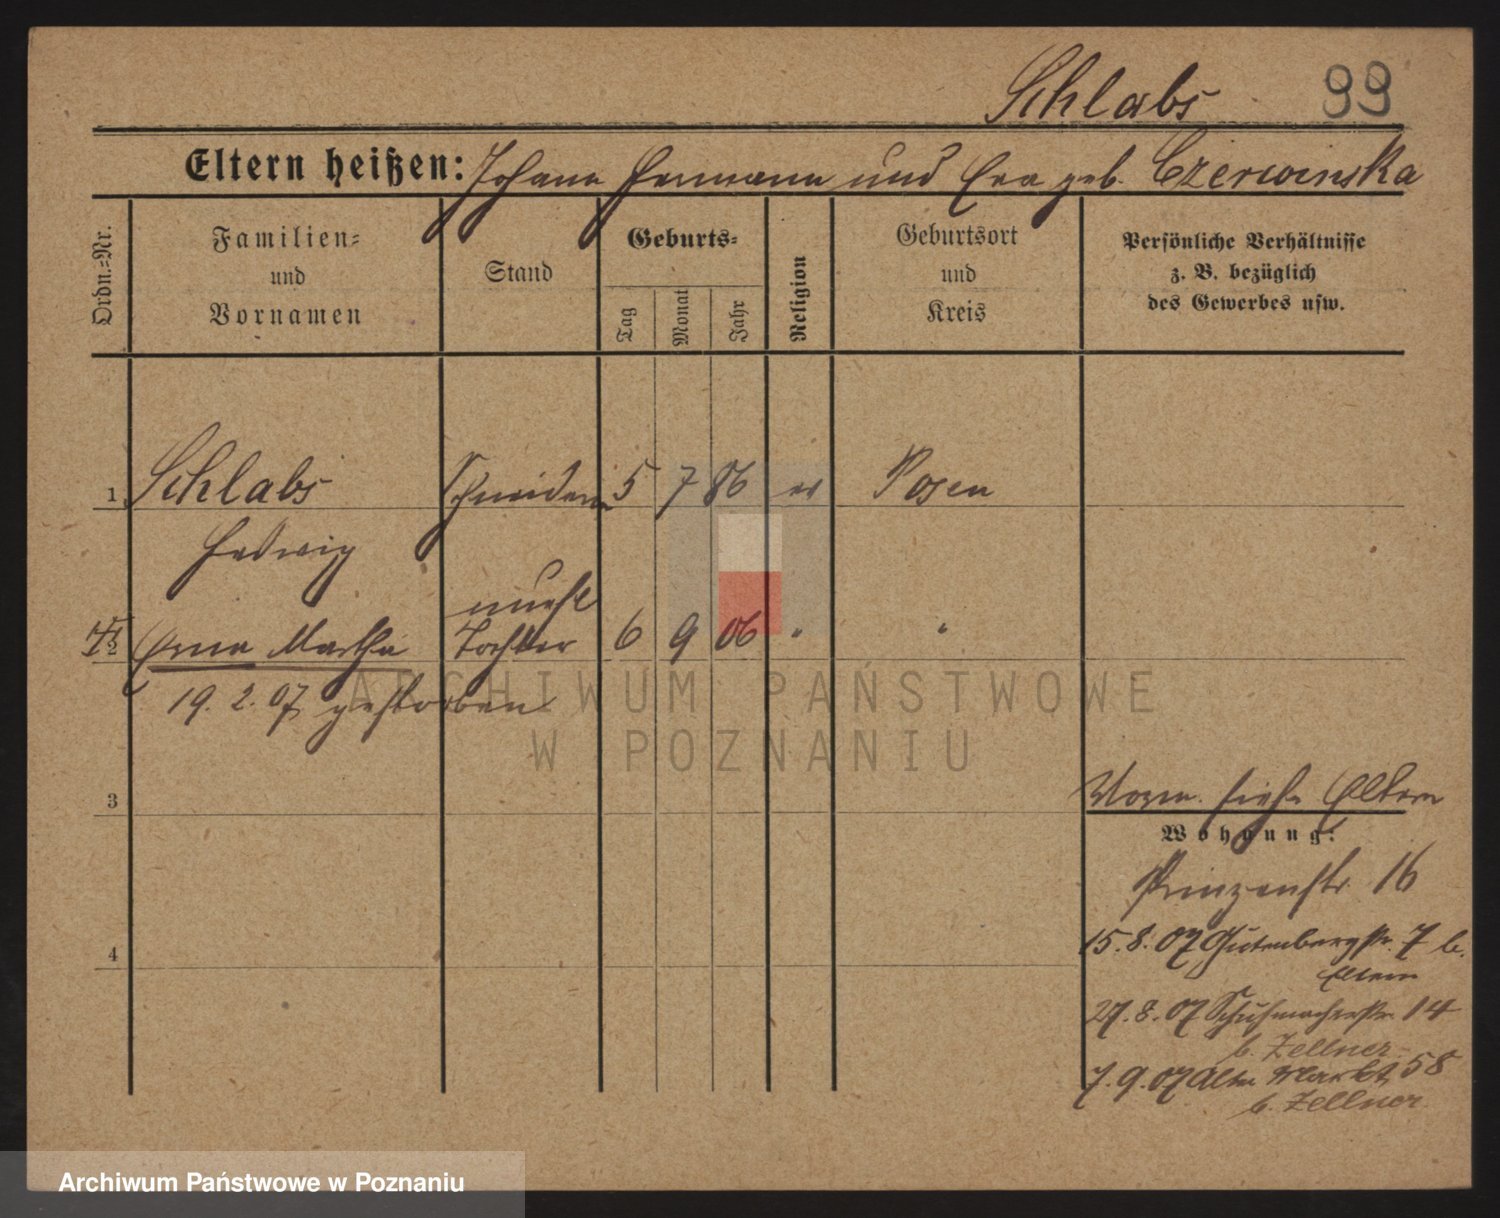 Schlabs 99
Eltern heißen: Johann Hermann und Eva geb. Czerwinska
Ordn.-Nr.
Familien- und Vornamen
Stand
Geburts-
Tag
Monat
Jahr
Religion
Geburtsort und Kreis
Persönliche Verhältnisse z. B. bezüglich des Gewerbes usw.
1 Schlabs Schneiderin 5 7 86 ev Posen
Hedwig
unehl
2 Erna Martha Tochter 6 9 06 " "
19. 2. 07 gestorben
3
Vorm. siehe Eltern
Wohnung:
Prinzenstr. 16
15. 8. 07 Gutenbergstr. 7 b.
Eltern
4
27. 8. 07 Schuhmacherstr. 14
b. Zellner
7. 9. 07 Alter Markt 58
b. Zellner
ARCHIWUM PAŃSTWOWE
W POZNANIU
Archiwum Państwowe w Poznaniu